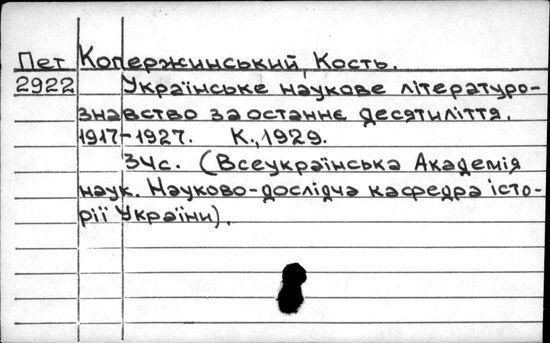 Пет Копержинський, Кость.
2922 Українське наукове літературо-
знавство за останнє десятиліття.
1917-1927. К., 1929.
34с. (Всеукраїнська Академія
наук. Науково-дослідча кафедра істо-
рії України).